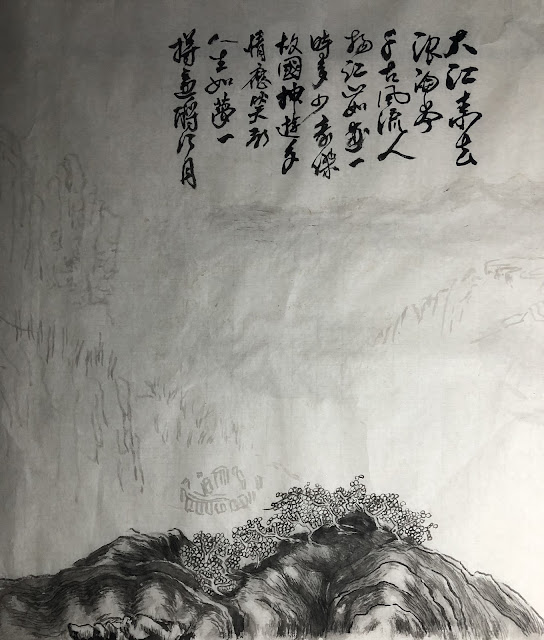 大江東去
浪淘尽
千古風流人
物江山如畫一
時多少豪傑
故國神遊多
情應笑我
人生如夢一
樽還酹江月